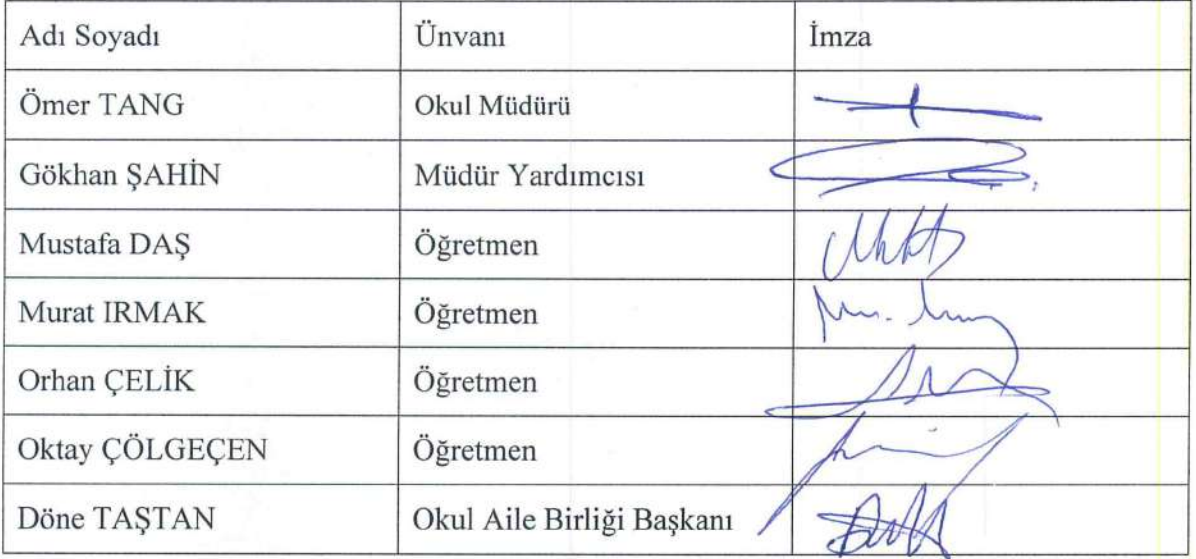 Adı Soyadı Ünvanı İmza
Ömer TANG Okul Müdürü
Gökhan ŞAHİN Müdür Yardımcısı
Mustafa DAŞ Öğretmen
Murat IRMAK Öğretmen
Orhan ÇELİK Öğretmen
Oktay ÇÖLGEÇEN Öğretmen
Döne TAŞTAN Okul Aile Birliği Başkanı